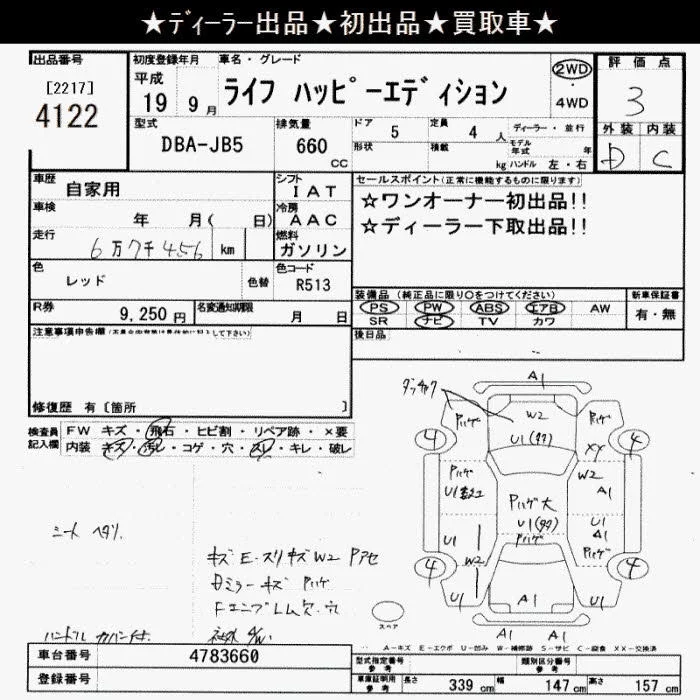 ★ディーラー出品★初出品★買取車★
出品番号
[2217]
4122
初度登録年月
平成
19 9月
車名・グレード
ライフ ハッピーエディション
2WD
・
4WD
評価点
3
外装 内装
D C
型式
DBA-JB5
排気量
660
cc
ドア 5
定員 4 人
ディーラー・並行
形状
積載
kg
モデル年式 年
ハンドル 左・右
車歴 自家用
シフト
I AT
セールスポイント(正常に機能するものに限ります)
☆ワンオーナー初出品!!
☆ディーラー下取出品!!
車検
年 月( 日)
冷房
A AC
走行
6万7千456 km
燃料
ガソリン
色
レッド
色替
色コード
R513
装備品 (純正品に限り○をつけてください)
PS PW ABS エアB AW
SR ナビ TV カワ
新車保証書
有・無
R券
9,250円
名変通知期限
月 日
後日品
注意事項申告欄
修復歴 有〔箇所 〕
検査員
記入欄
FW キズ・飛石・ヒビ割・リペア跡・×要
内装 キズ・汚レ・コゲ・穴・スレ・キレ・破レ
A1
W2
U1(タタ)
Pハゲ
Pハゲ
4
4
XY
W2
Pハゲ
U1
A1
Pハゲ大
U1(タタ)
Pハゲ
U1
A1
Pハゲ
U1
W2
4
4
U1
A1
U1
A1 A1
スペア
シート ヘタリ
キズ E・スリキズ W2 Pアセ
ミラーキズ Pハゲ
ハンドルカバー付
A-キズ E-エクボ U-凹み W-補修跡 S-サビ C-腐食 XX-交換済
車台番号 4783660
登録番号
型式指定番号
参考
類別区分番号
参考
車庫証明用
参考
長さ 339 cm
幅 147 cm
高さ 157 cm